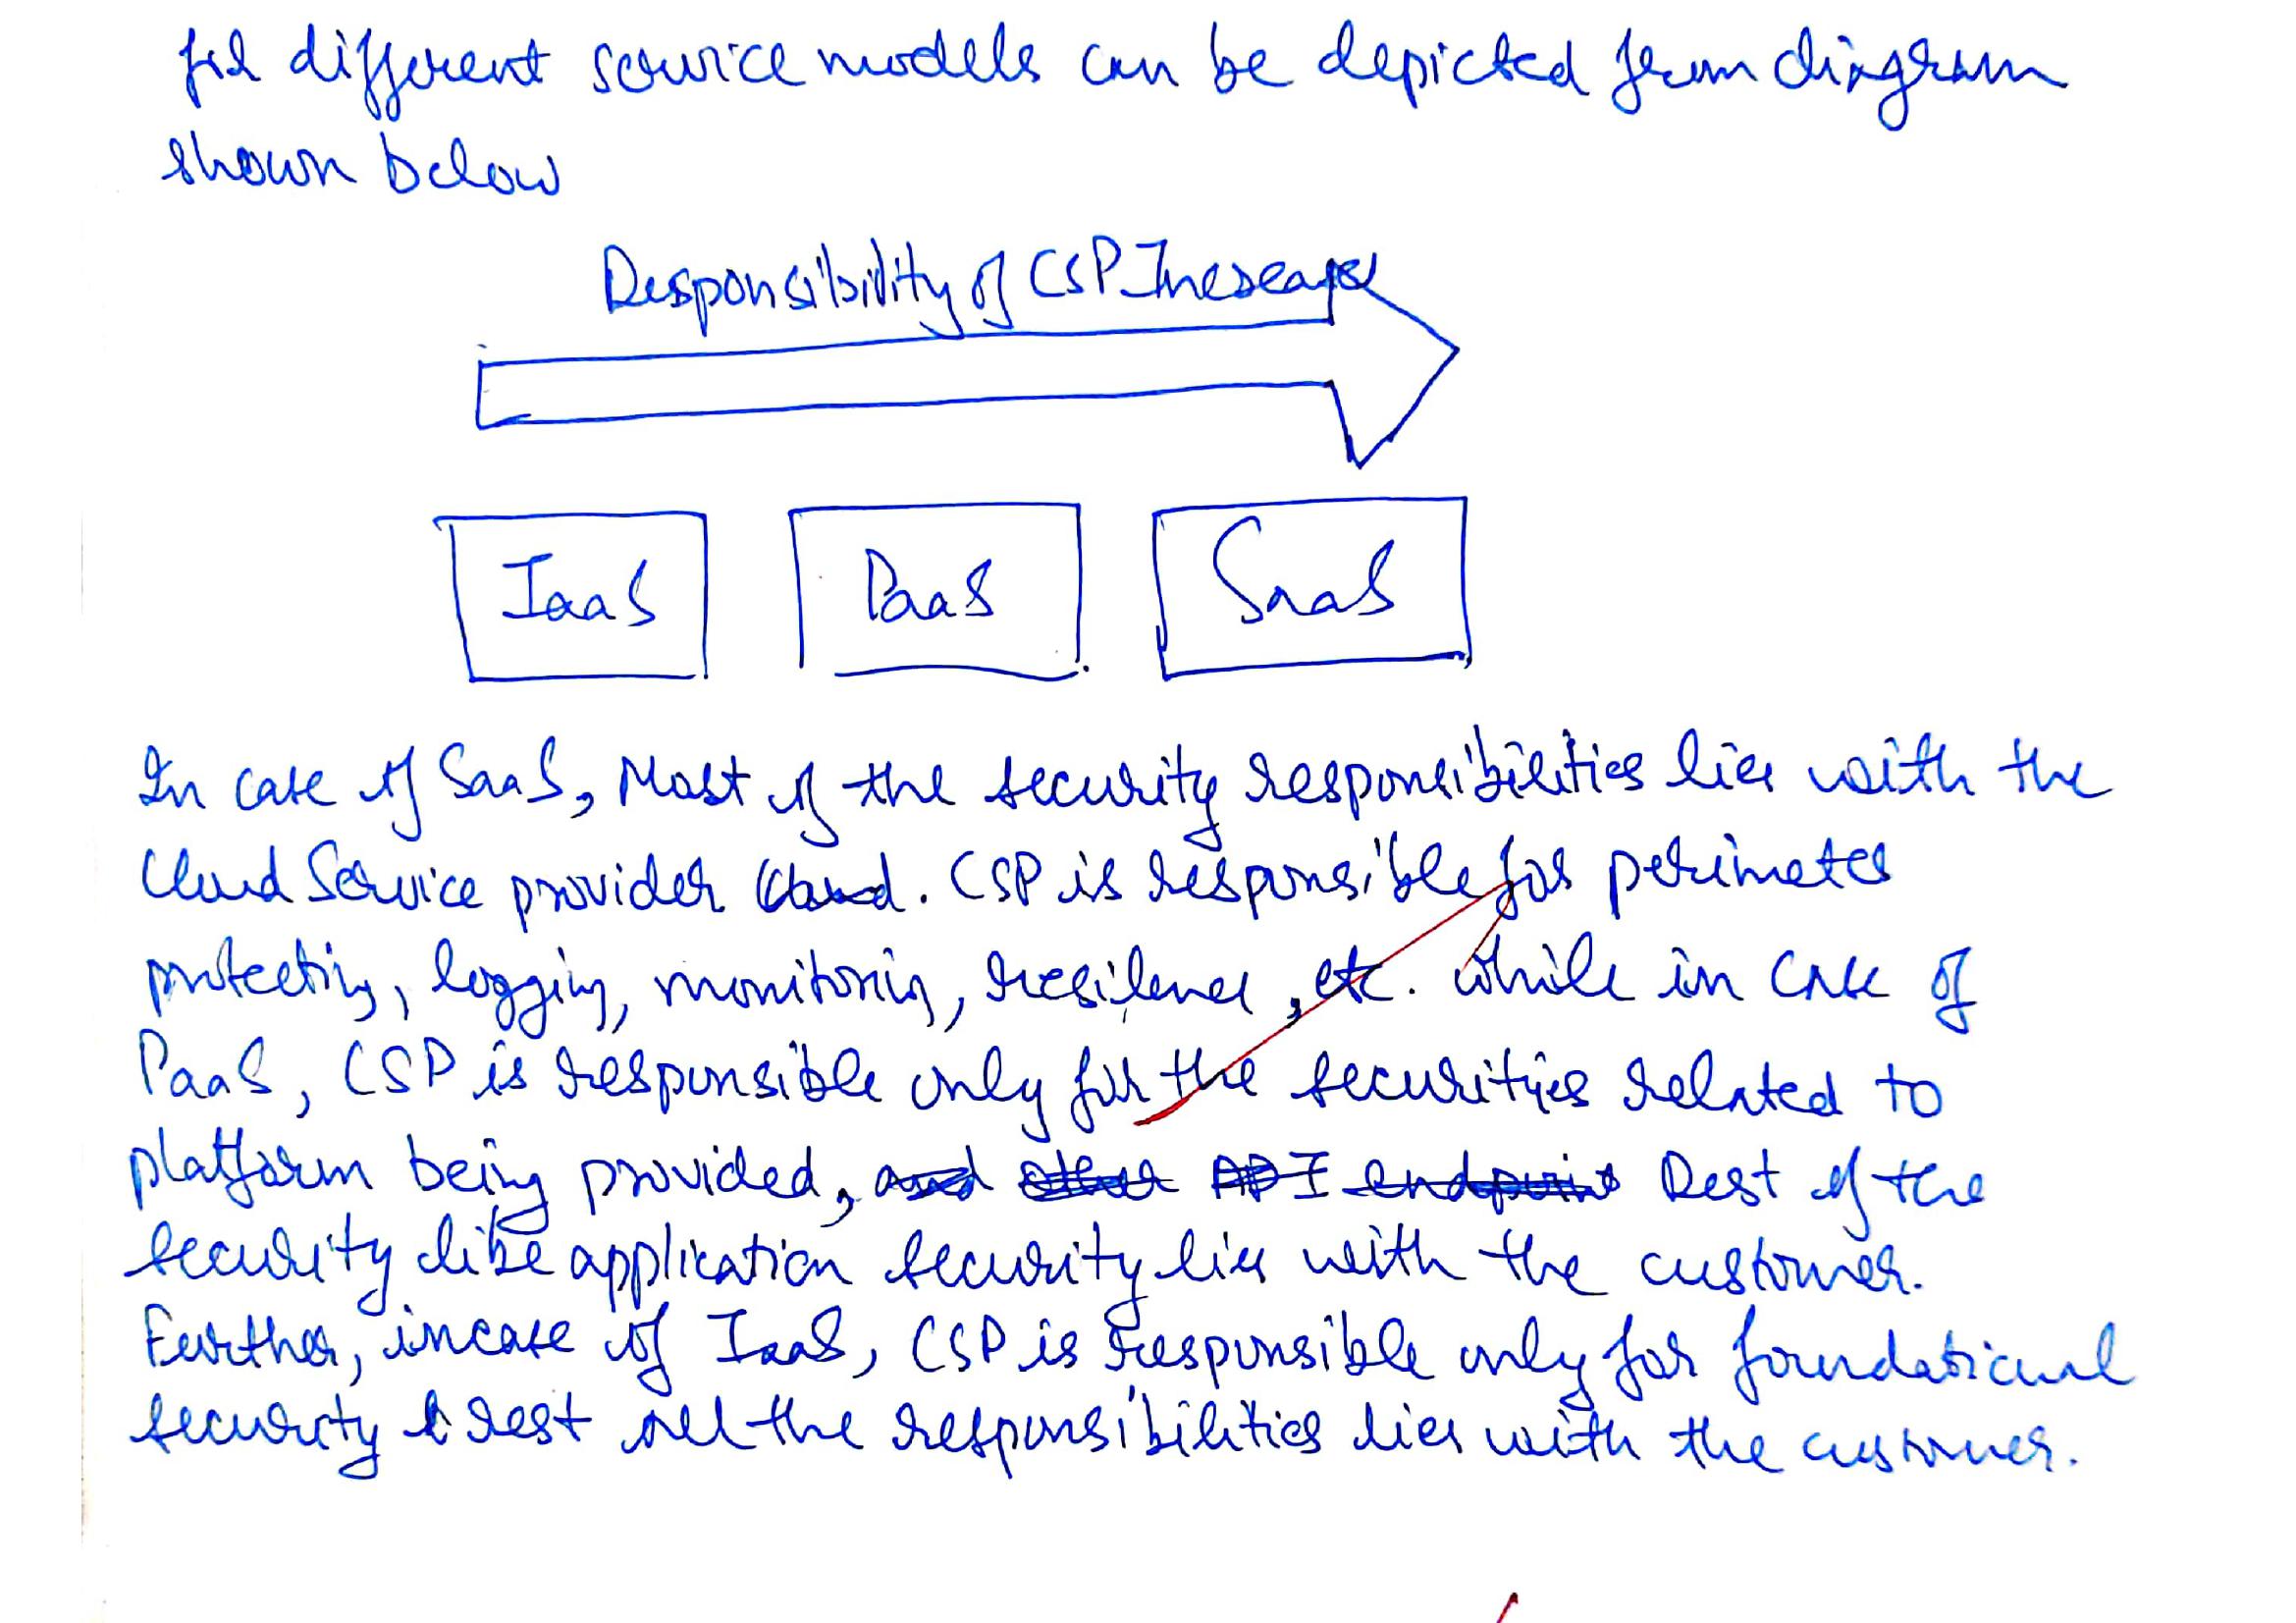 for different service models can be depicted from diagram
shown below
Responsibility of CSP Increases
IaaS
PaaS
SaaS
In case of SaaS, Most of the security responsibilities lies with the
Cloud Service provider. CSP is responsible for perimeter
protecting, logging, monitoring, resilence, etc. while in case of
PaaS, CSP is responsible only for the securities related to
platform being provided, and other API endpoint Rest of the
security like application security lies with the customer.
Further, incase of IaaS, CSP is responsible only for foundational
security & rest all the responsibilities lies with the customer.